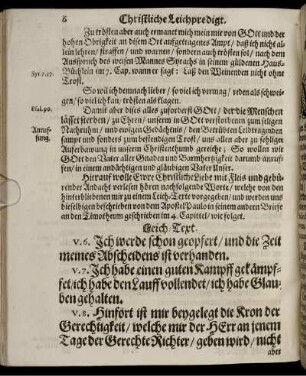 6 Christliche Leichpredigt.
Zu trösten aber auch ermanet mich mein mir von GOtt und der
hohen Obrigkeit an disem Ort aufgetragenes Ampt / daß ich nicht al-
lein lehren / straffen / und warnen / sondern auch trösten sol / nach dem
Ausspruch des weisen Mannes Syrachs in seinem güldenen Haus-
Syr. 7, 37. Büchlein im 7. Cap. wann er sagt: Laß den Weinenden nicht ohne
Trost.
So wil ich demnach lieber / so viel ich vermag / reden als schwei-
gen / so viel ich kan / trösten als klagen.
Psal. 90. Damit aber dises alles zuforderst GOtt / der die Menschen
lässet sterben / zu Ehren / unserm in GOtt verstorbenen zum seligen
Anruf- Nachruhm / und ewigen Gedächtnis / den Betrübten Leidtragenden
fung. sampt und sonders zum beständigen Trost / uns allen aber zu seliger
Auferbawung in unserm Christenthumb gereiche; So wollen wir
GOtt den Vater aller Gnaden und Barmhertzigkeit darumb anruf-
fen / in einem andächtigen und gläubigen Vater Unser.
Hierauf wolle Ewre Christliche Liebe mit Fleis und gebü-
render Andacht verlesen hören nachfolgende Worte / welche von den
Leidtragenden mir zu einem Leich-Texte vorgegeben / und werden uns
dieselbigen beschrieben von dem Apostel Paulo in seinem andern Briefe
an den Timotheum geschrieben im 4. Capittel / wie folget.
Leich-Text.
v. 6. Ich werde schon geopfert / und die Zeit
meines Abscheidens ist verhanden.
v. 7. Ich habe einen guten Kampff gekämpf-
fet / ich habe den Lauff vollendet / ich habe Glau-
ben gehalten.
v. 8. Hinfort ist mir beygelegt die Kron der
Gerechtigkeit / welche mir der HErr an jenem
Tage der Gerechte Richter / geben wird / nicht
aber